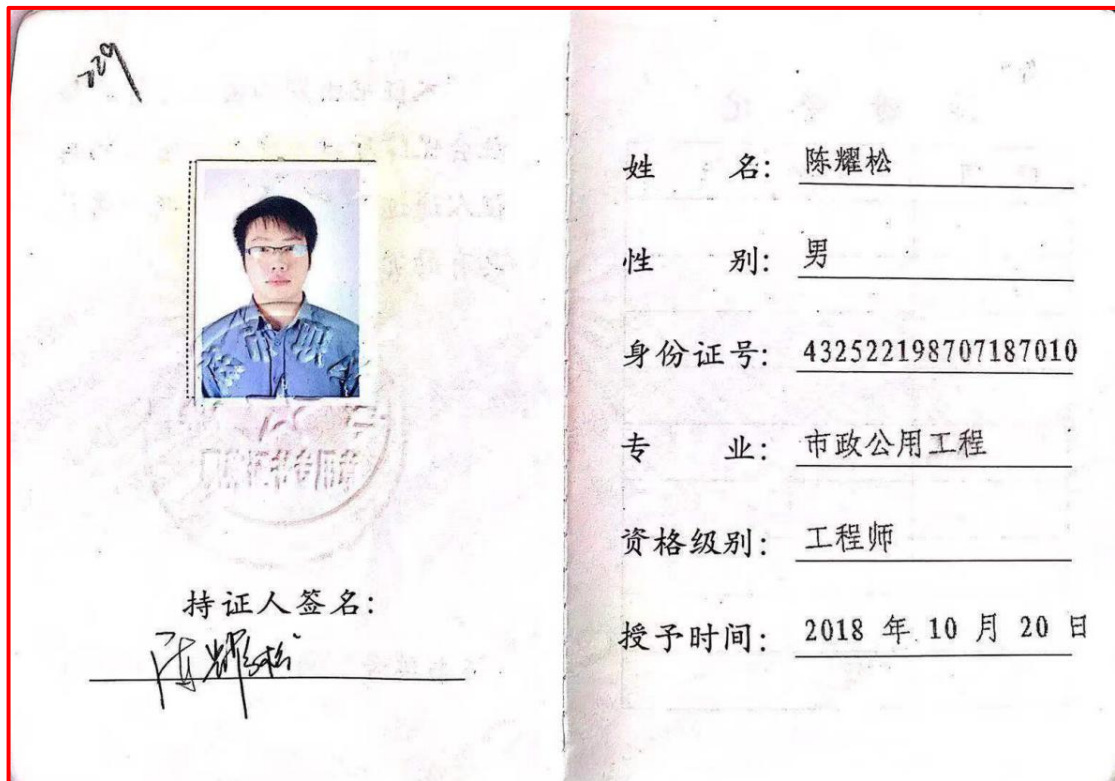 729
持证人签名：
陈耀松
姓 名： 陈耀松
性 别： 男
身份证号： 432522198707187010
专 业： 市政公用工程
资格级别： 工程师
授予时间： 2018 年 10 月 20 日